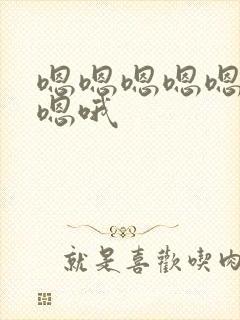 嗯嗯嗯嗯嗯
嗯哦
就是喜歡喫肉